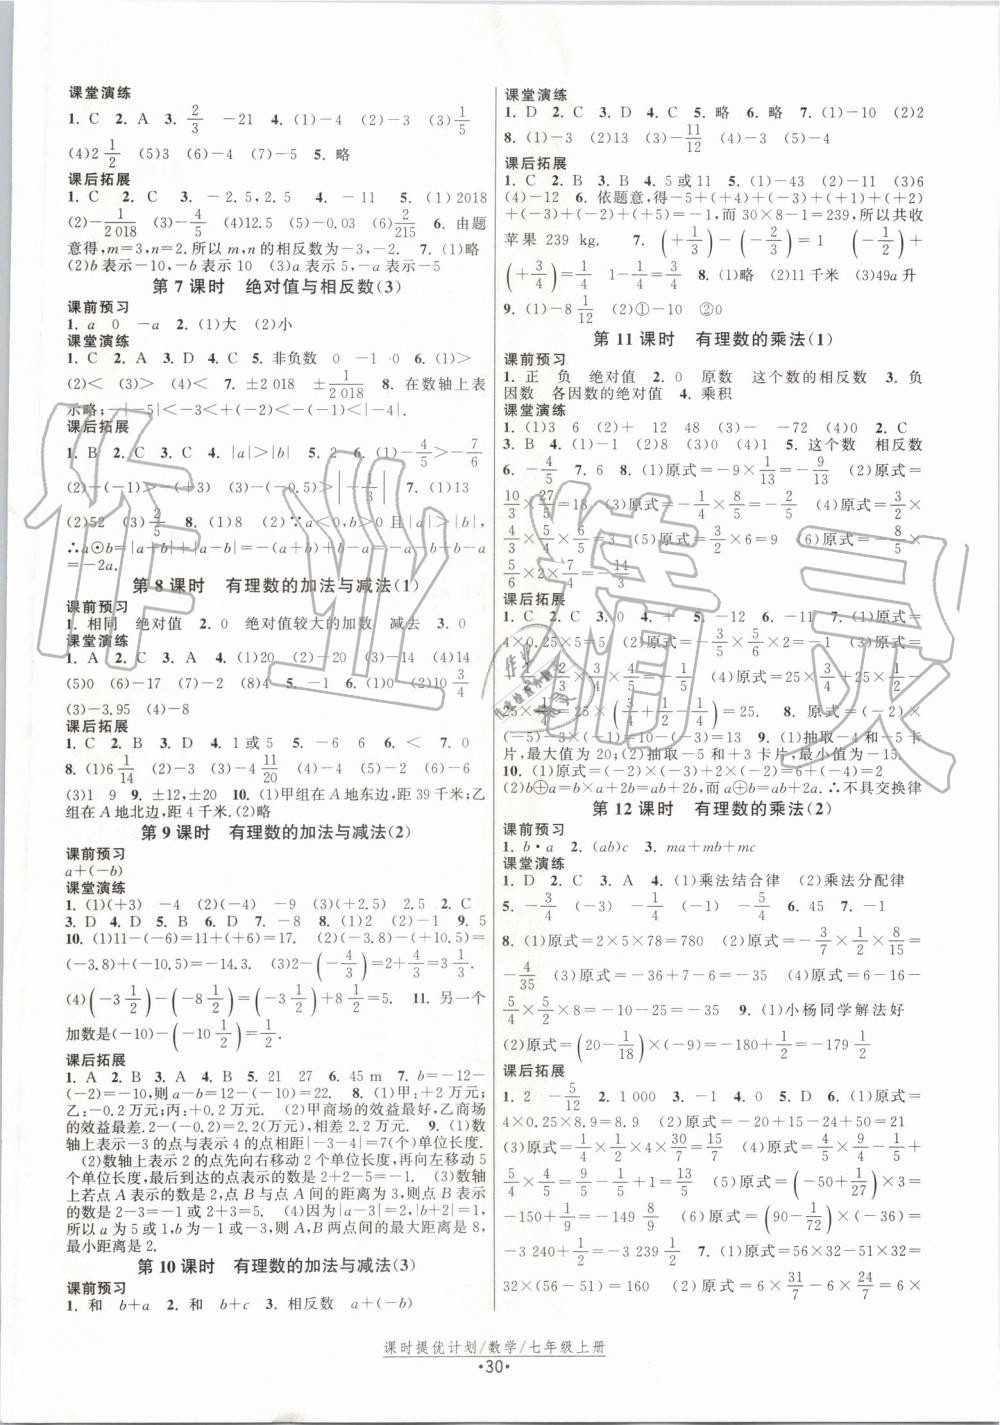 课堂演练
1. C 2. A 3. 2/3 -21 4. (1)-4 (2)-3 (3)1/5
(4)2 1/2 (5)3 (6)-4 5. 略
课后拓展
1. C 2. C 3. -2.5,2.5 4. -11 5. (1)2018
(2)-1/2 018 (3)-4/5 (4)12.5 (5)-0.03 (6)2/215 6. 由题
意得,m=3,n=2.所以m,n的相反数为-3,-2. 7. (1)略
(2)b表示-10,-b表示10 (3)a表示5,-a表示-5
第7课时 绝对值与相反数(3)
课前预习
1. a 0 -a 2. (1)大 (2)小
课堂演练
1. C 2. A 3. D 4. C 5. 非负数 0 -1 0 6. (1)>
(2)< (3)> (4)< 7. ±2 018 ±1/2 018 8. 在数轴上表
示略;-|-5|<-3<+(-2)<-1<|-4|.
课后拓展
1. B 2. C 3. C 4. |a|>|b| 5. 2 6. (1)-4/5>-7/6
(2)-(-1)>-|-1/3| 7. (1)13
(2)52 (3)2/5 8. (1)8 (2)∵a<0,b>0且|a|>|b|,
∴a⊙b=|a+b|+|a-b|=-a-b-a+b
=-2a.
第8课时 有理数的加法与减法(1)
课前预习
1. 相同 绝对值 2. 0 绝对值较大的加数 减去 3. 0
课堂演练
1. A 2. C 3. D 4. (1)20 (2)-20 (3)-14 (4)14
(5)0 (6)-17 (7)-8 5. -1 6. (1)0 (2)10 3/4
(3)-3.95 (4)-8
课后拓展
1. C 2. B 3. D 4. 1或5 5. -6 6 6. < 7. 0
8. (1)6 1/14 (2)-3 (3)-4 11/20 (4)-3 (5)-2 (6)-6
(3)1 9 9. ±12,±20 10. (1)甲组在A地东边,距39千米;乙
组在A地北边,距4千米.(2)略
第9课时 有理数的加法与减法(2)
课前预习
a+(-b)
课堂演练
1. (1)(+3) -4 (2)(-4) -9 (3)(+2.5) 2.5 2. C
3. D 4. D 5. B 6. D 7. -8 8. (1)2 (2)-1 9. 5
10. (1)11-(-6)=11+(+6)=17. (2)(-3.8)-(+10.5)=
(-3.8)+(-10.5)=-14.3. (3)2-(-4/3)=2+4/3=3 1/3.
(4)(-3 1/2)-(-8 1/2)=(-3 1/2)+8 1/2=5. 11. 另一个
加数是(-10)-(-10 1/2)=1/2.
课后拓展
1. A 2. B 3. A 4. B 5. 21 27 6. 45 m 7. b=-12-
(-2)=-10,则a-b=12-(-10)=22. 8. (1)甲:+2万元;
乙:-0.2万元;丙:+0.2万元. (2)甲商场的效益最好,乙商场的
效益最差. 2-(-0.2)=2.2(万元),相差2.2万元. 9. (1)数
轴上表示-3的点与表示4的点相距|-3-4|=7(个)单位长度.
(2)数轴上表示2的点先向右移动2个单位长度,再向左移动5
个单位长度,最后到达的点表示的数是2+2-5=-1. (3)数轴
上若点A表示的数是2,点B与点A间的距离为3,则点B表示
的数是2-3=-1或2+3=5. (4)因为|a-3|=2,|b+2|=1,
所以a为5或1,b为-1或-3,则A,B两点间的最大距离是8,
最小距离是2.
第10课时 有理数的加法与减法(3)
课前预习
1. 和 b+a 2. 和 b+c 3. 相反数 a+(-b)
课堂演练
1. D 2. C 3. D 4. C 5. 略 6. 略 7. (1)-10 (2)2
8. (1)-3 (2)13 (3)-11/12 (4)-3 (5)-4
课后拓展
1. C 2. B 3. B 4. 5或11 5. (1)-43 (2)-3 (3)6
(4)-12 6. 依题意,得-5+(+3)+(-4)+(+1)+(+2)
+(-3)+(-2)+(+5)+=-1,而30×8-1=239,所以共收
苹果239 kg. 7. (+1/3)-(-2/3)=1 (-1/2)+
(+3/4)=1/4 1-1/4=3/4 8. (1)略 (2)11千米 (3)49a升
9. (1)-8 1/12 (2)①-10 ②0
第11课时 有理数的乘法(1)
课前预习
1. 正 负 绝对值 2. 0 原数 这个数的相反数 3. 负
因数 各因数的绝对值 4. 乘积
课堂演练
1. (1)3 6 (2)+ 12 48 (3)- -72 (4)0 2. C
3. B 4. (1)-1 (2)8 (3)0 (4)1 5. 这个数 相反数
6. -4/5 7. 6 8. (1)原式=-9×1/13=-9/13 (2)原式=
10/3×27/5=18 (3)原式=-4/5×3/2 (4)原式=3/2
×5/4×4/5×6/5=3 (5)原式=3/2×6=9 (6)原式=-8/5
×5/2×7/6=-14/3
课后拓展
1. B 2. C 3. 0 4. + 5. -12 6. -11 7. (1)原式=
4×0.25×5=5 (2)原式=-3/5×5/2×2=-1 (3)原式=
(4)原式=25×3/4+25×1/2
-25×1/4=25×(3/4+1/2-1/4)=25. 8. (1)原式=
-1 9. (1)抽取-4和-5卡
片,最大值为20;(2)抽取-5和+3卡片,最小值为-15.
10. (1)原式=(-2)×(-3)+(-2)+(-3)=1
(2)b⊕a=b×a-2b=ab+2b,而a⊕b=ab+2a.∴不具交换律
第12课时 有理数的乘法(2)
课前预习
1. b·a 2. (ab)c 3. ma+mb+mc
课堂演练
1. D 2. C 3. A 4. (1)乘法结合律 (2)乘法分配律
5. -3/4 (-3) -1/4 (-1) -5/4 6. 45 7. -1
8. (1)原式=2×5×78=780 (2)原式=-3/7×1/2×8/15=
-4/35 (3)原式=-36+7-6=-35 (4)原式=6-16-
5/4×5/2×8=-10-25=-35 9. (1)小杨同学解法好
(2)原式=(20-1/18)×(-9)=-180+1/2=-179 1/2
课后拓展
1. 2 -5/12 2. 1 000 3. -1 4. 0 5. (1)原式=
4×0.25×8.9=8.9 (2)原式=20-15-24+50=21
(3)原式=1/7×4×30/7=15/7 (4)原式=4/5×9/4×
5/6=1/5 (5)原式=(-50+1/27)×3=
-150+1/9=-149 8/9 (6)原式=(90-1/72)×(-36)=
-3 240+1/2=-3 239 1/2 7. (1)原式=56×32-51×32=
32×(56-51)=160 (2)原式=6×31/7-6×24/7=6×
课时提优计划/数学/七年级上册
·30·
作业精灵